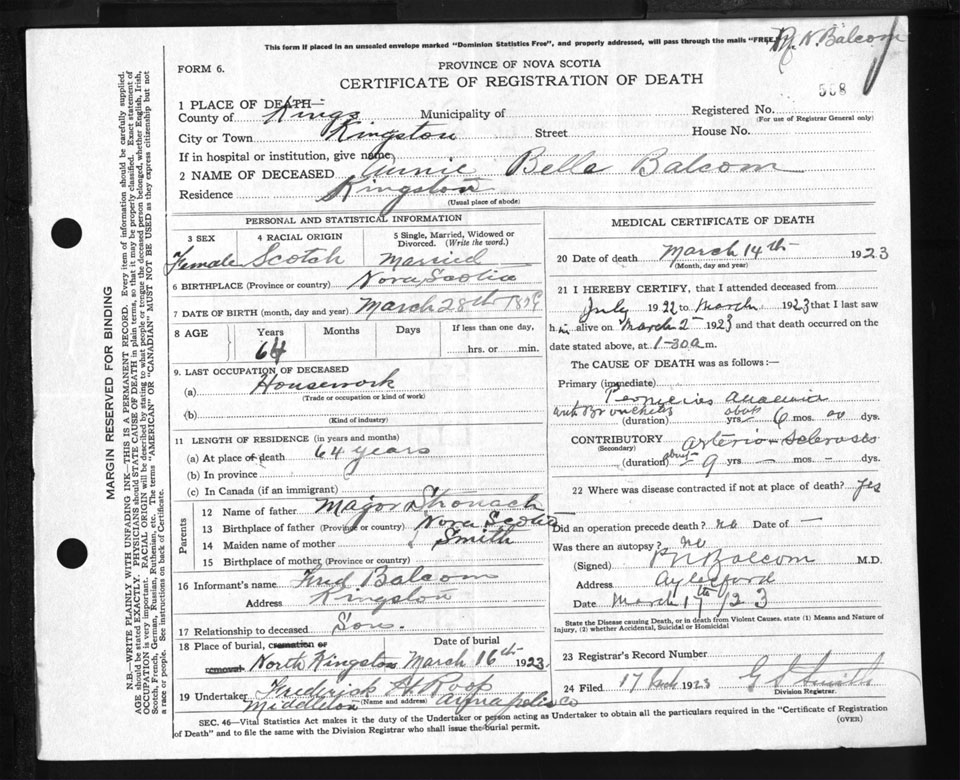 This form if placed in an unsealed envelope marked "Dominion Statistics Free", and properly addressed, will pass through the mails "FREE."
N. Balcom
FORM 6.
PROVINCE OF NOVA SCOTIA
CERTIFICATE OF REGISTRATION OF DEATH
568
1 PLACE OF DEATH—
County of Kings Municipality of
Registered No.
(For use of Registrar General only)
City or Town Kingston Street House No.
If in hospital or institution, give name
2 NAME OF DECEASED Annie Bella Balcom
Residence Kingston
(Usual place of abode)
PERSONAL AND STATISTICAL INFORMATION
3 SEX 4 RACIAL ORIGIN 5 Single, Married, Widowed or Divorced. (Write the word.)
Female Scotch Married
6 BIRTHPLACE (Province or country) Nova Scotia
7 DATE OF BIRTH (month, day and year) March 28th
8 AGE Years Months Days If less than one day,
64 hrs. or min.
9. LAST OCCUPATION OF DECEASED
(a) Housework
(Trade or occupation or kind of work)
(b)
(Kind of industry)
11 LENGTH OF RESIDENCE (in years and months)
(a) At place of death 64 years
(b) In province
(c) In Canada (if an immigrant)
Parents
12 Name of father Major Stronach
13 Birthplace of father (Province or country) Nova Scotia
14 Maiden name of mother Smith
15 Birthplace of mother (Province or country)
16 Informant's name Fred Balcom
Address Kingston
17 Relationship to deceased Son.
18 Place of burial, cremation or removal Date of burial
North Kingston March 16th 1923
19 Undertaker Frederick A Roop
(Name and address)
Middleton Annapolis Co
MEDICAL CERTIFICATE OF DEATH
20 Date of death March 14th 1923
(Month, day and year)
21 I HEREBY CERTIFY, that I attended deceased from
July 1922 to March 1923 that I last saw
h alive on March 2 1923 and that death occurred on the
date stated above, at 1-30 a m.
The CAUSE OF DEATH was as follows:—
Primary (immediate)
Pernicious Anaemia
and Bronchitis
(duration) yrs. 6 mos. dys.
CONTRIBUTORY Arterio-Sclerosis
(Secondary)
(duration) about 9 yrs — mos. — dys.
22 Where was disease contracted if not at place of death? Yes
Did an operation precede death? no Date of —
Was there an autopsy? no
(Signed) Balcom M.D.
Address Aylesford
Date March 17th /23
State the Disease causing Death, or in death from Violent Causes, state (1) Means and Nature of Injury, (2) whether Accidental, Suicidal or Homicidal
23 Registrar's Record Number
24 Filed 17 1923
Division Registrar.
SEC. 46—Vital Statistics Act makes it the duty of the Undertaker or person acting as Undertaker to obtain all the particulars required in the "Certificate of Registration
of Death" and to file the same with the Division Registrar who shall issue the burial permit.
(OVER)
MARGIN RESERVED FOR BINDING
N.B.—WRITE PLAINLY WITH UNFADING INK—THIS IS A PERMANENT RECORD. Every item of information should be carefully supplied.
AGE should be stated EXACTLY. PHYSICIANS should STATE CAUSE OF DEATH in plain terms, so that it may be properly classified. Exact statement of
OCCUPATION is very important. RACIAL ORIGIN will be described by stating to what people or tongue the deceased person belonged, whether English, Irish,
Scotch, French, German, Russian, Ruthenian, etc. The terms "AMERICAN" OR "CANADIAN" MUST NOT BE USED as they express citizenship but not
a race or people. See instructions on back of Certificate.